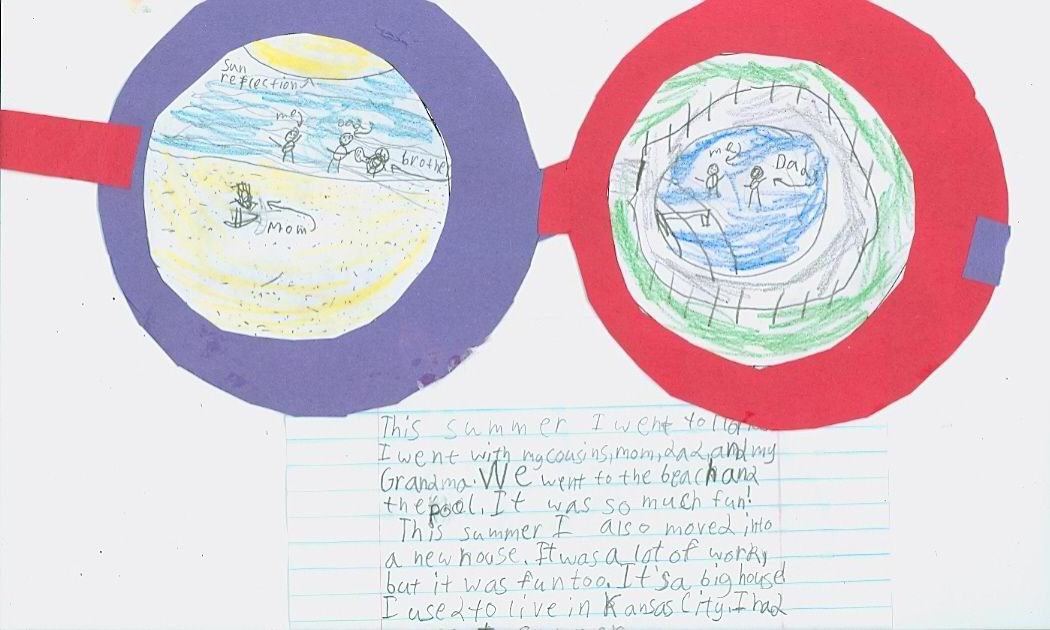 Sun
reflection
me
Dad
brothe
Mom
me
Dad
This summer I went to
I went with my cousins, mom, dad, and my
Grandma. We went to the beach and
the pool. It was so much fun!
This summer I also moved into
a new house. It was a lot of work,
but it was fun too. It's a big house!
I used to live in Kansas City. I had